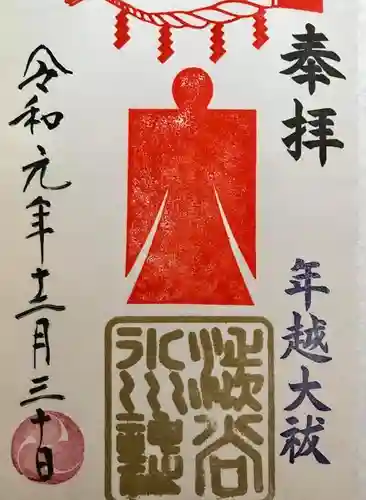 奉拝
年越大祓
渋谷
氷川
令和元年十二月三十日